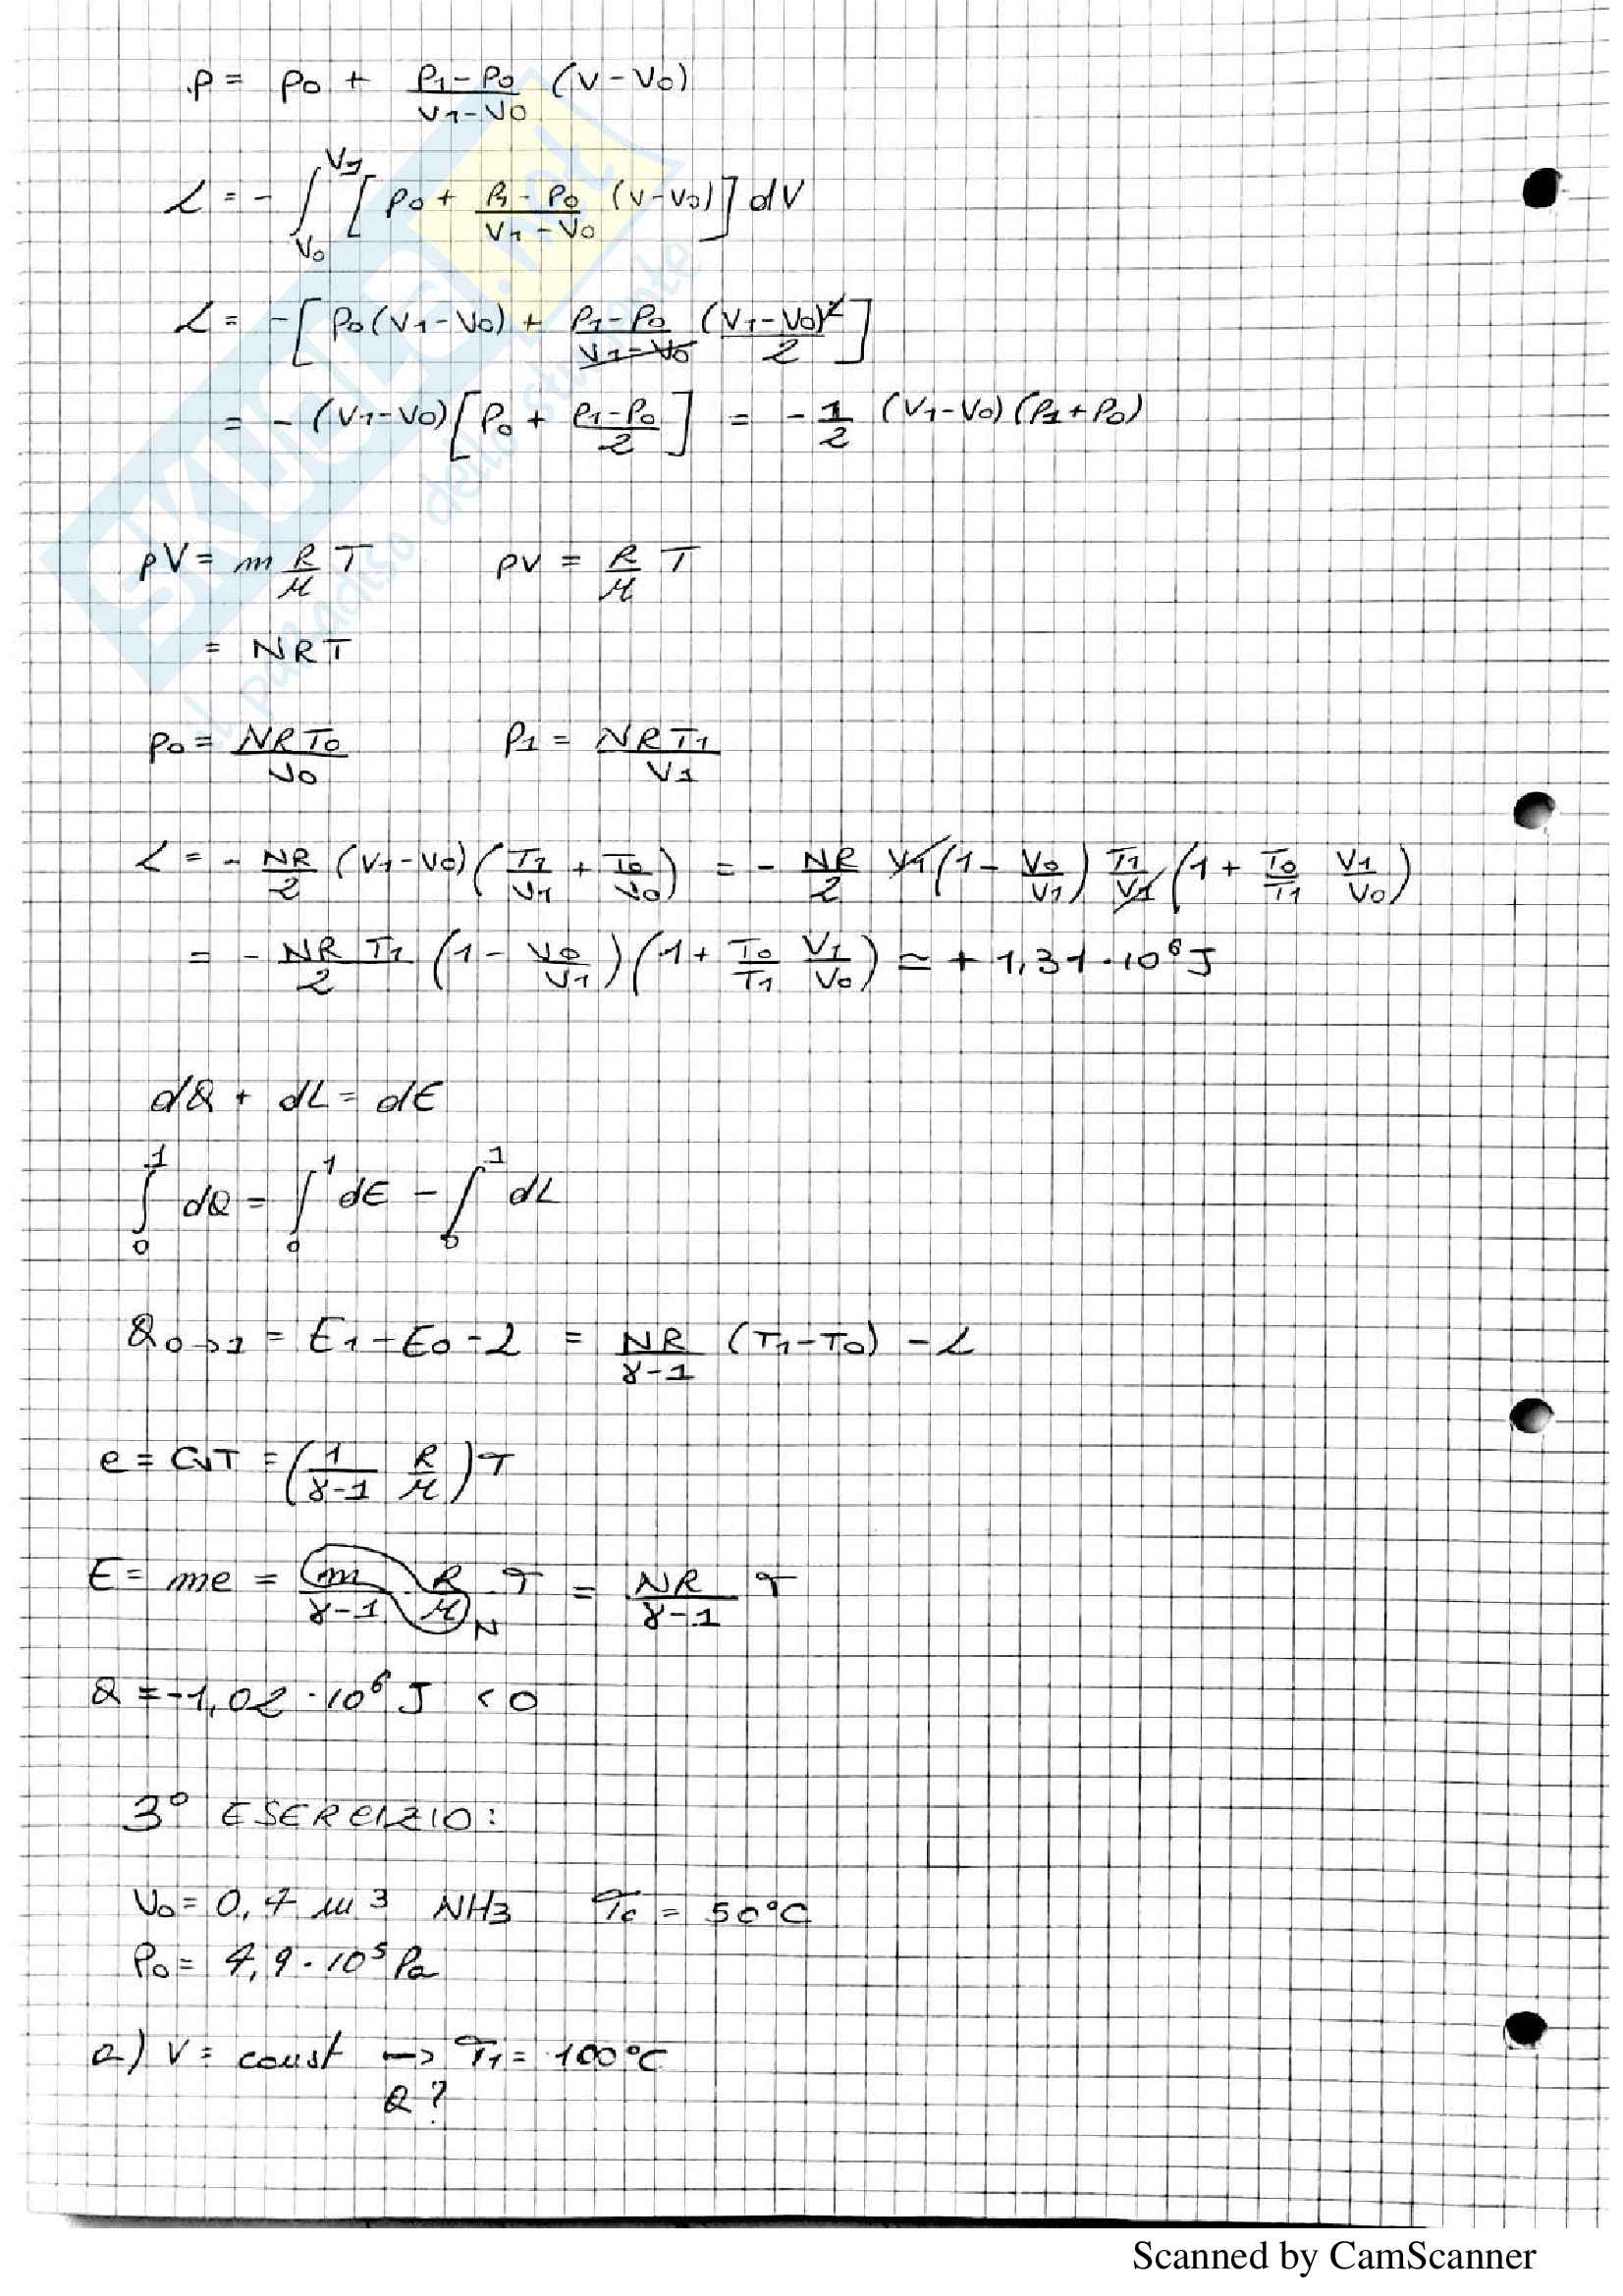 p = p0 + (p1-p0)/(v1-v0) (v-v0)
L = - ∫_{V0}^{V1} [p0 + (p1-p0)/(v1-v0) (v-v0)] dV
L = - [p0(v1-v0) + (p1-p0)/(v1-v0) (v1-v0)²/2]
= - (v1-v0) [p0 + (p1-p0)/2] = - 1/2 (v1-v0)(p1+p0)
pV = m R/M T pv = R/M T
= NRT
p0 = NRT0/V0 p1 = NRT1/V1
L = - NR/2 (v1-v0)(T1/V1 + T0/V0) = - NR/2 V1(1 - V0/V1) T1/V1 (1 + T0/T1 V1/V0)
= - NR T1/2 (1 - V0/V1)(1 + T0/T1 V1/V0) ≃ + 1,31·10⁶ J
dQ + dL = dE
∫_0^1 dQ = ∫_0^1 dE - ∫_0^1 dL
Q0→1 = E1 - E0 - L = NR/(γ-1) (T1-T0) - L
e = CvT = (1/(γ-1) R/M) T
E = me = m/(γ-1) · R/M · T = NR/(γ-1) T
N
Q = -1,02 · 10⁶ J < 0
3° ESERCIZIO:
V0 = 0,4 m³ NH3 T0 = 50°C
P0 = 4,9 · 10⁵ Pa
a) V = const → T1 = 100°C
Q?
SKUOLA.net
il paradiso dello studente
Scanned by CamScanner